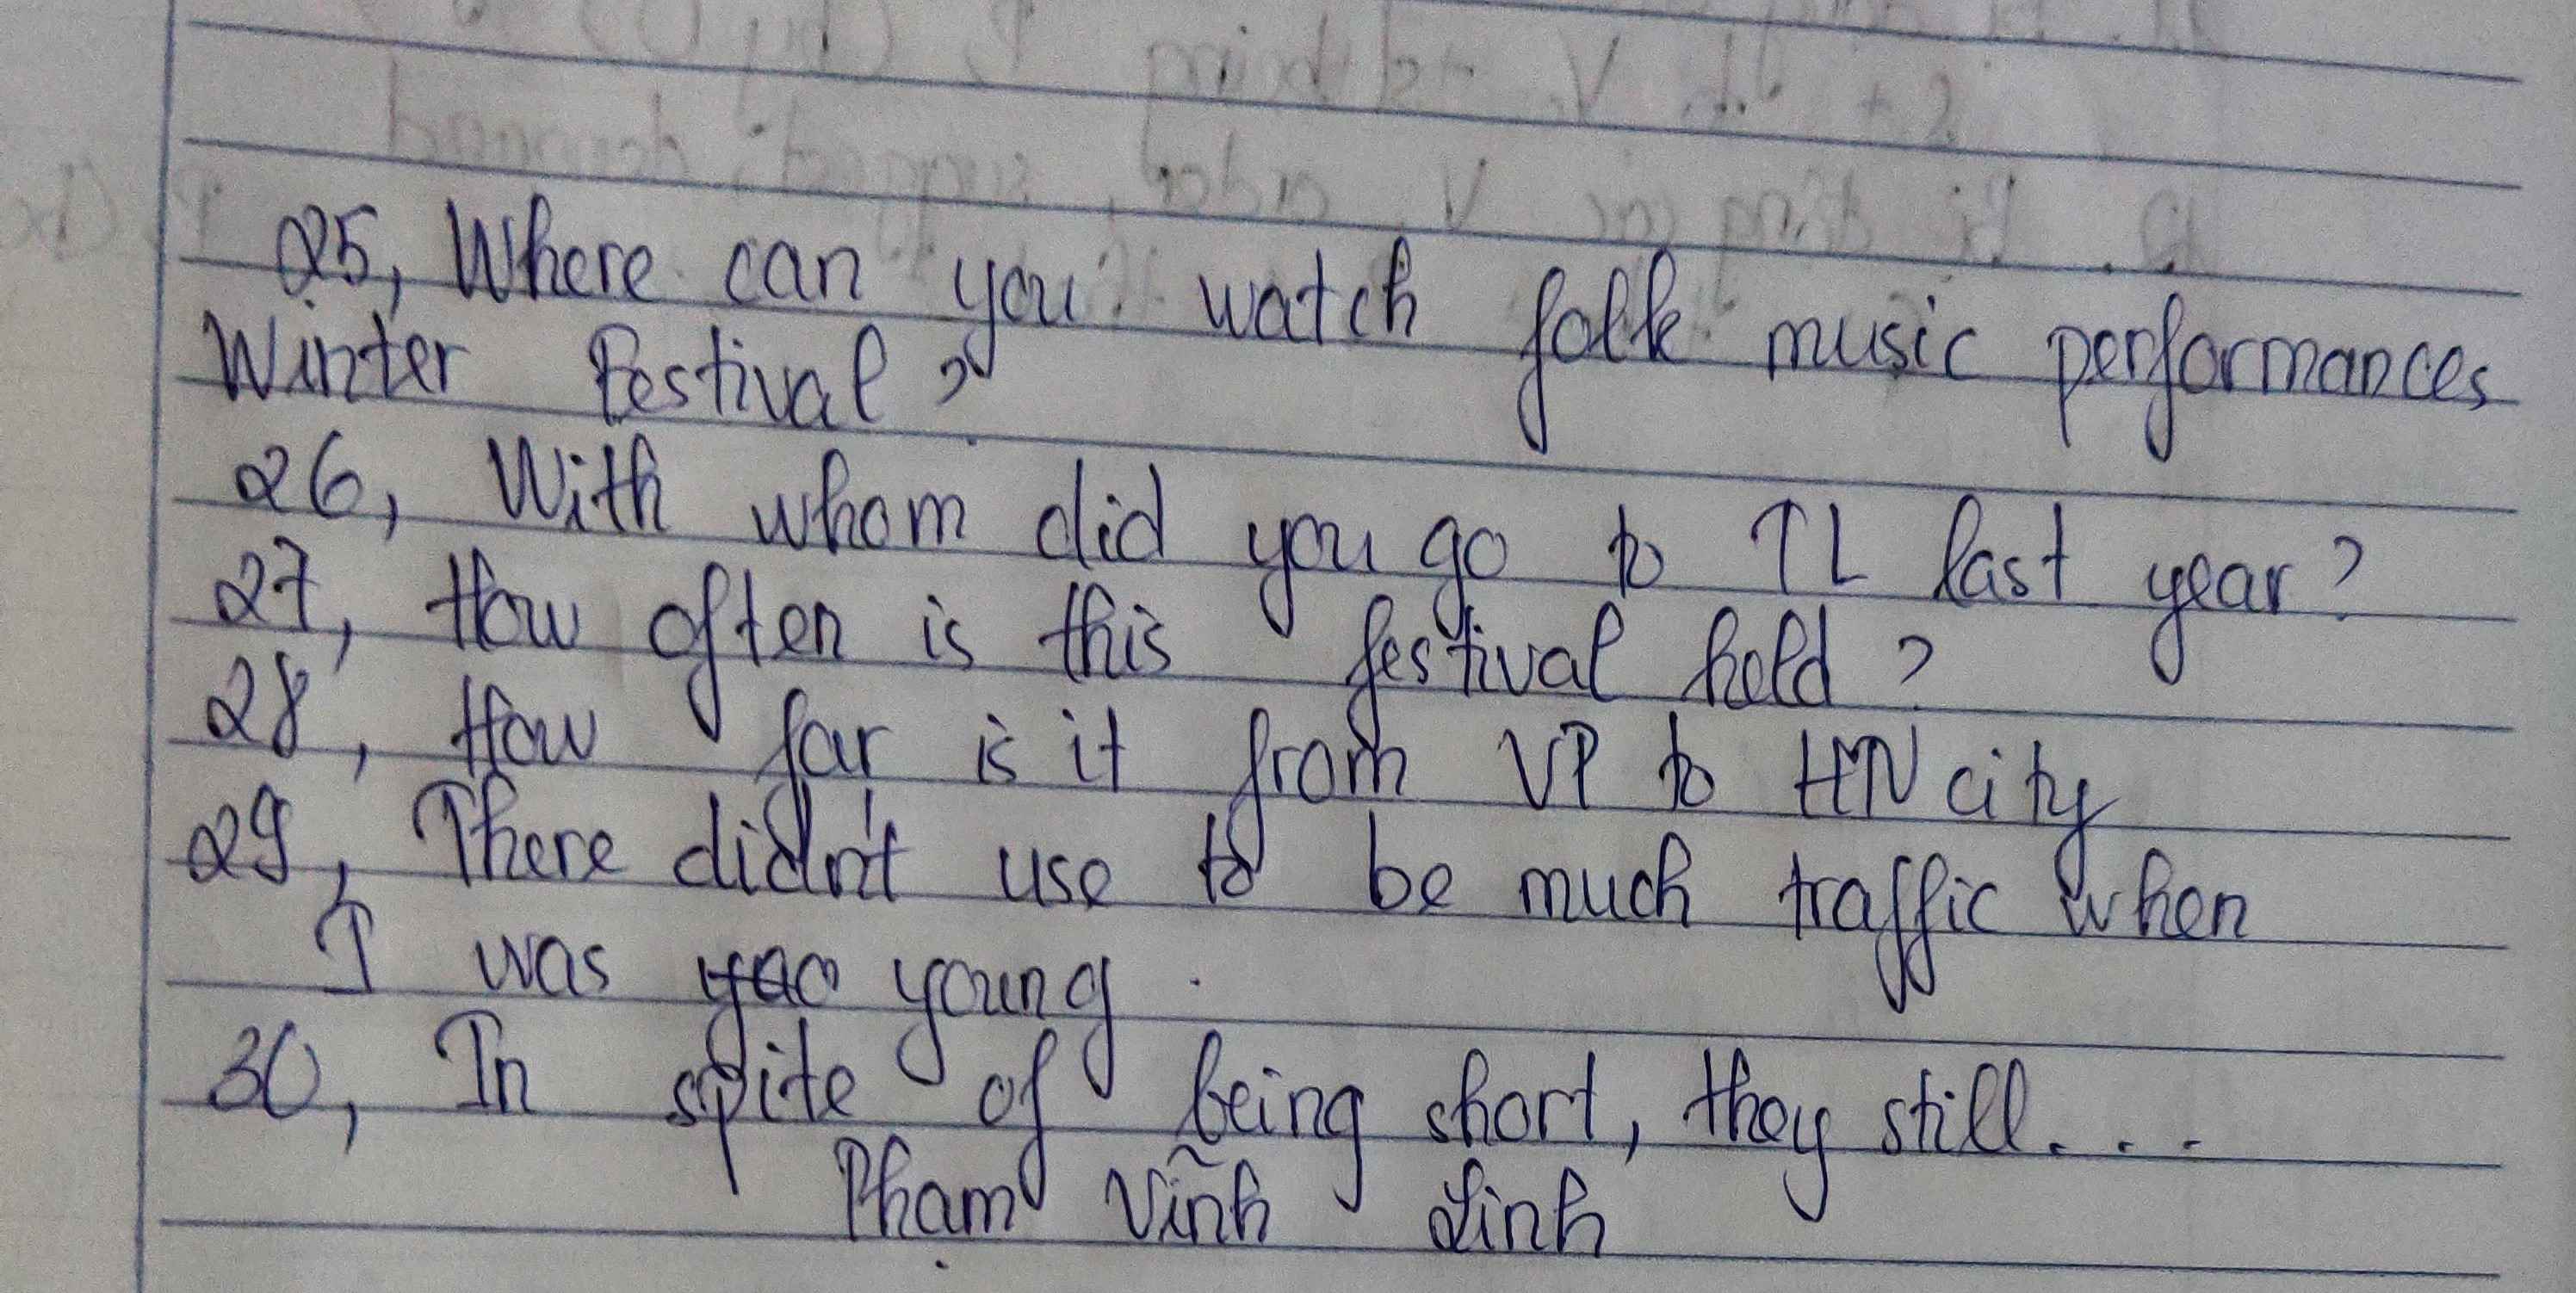 25, Where can you watch folk music performances
Winter Festival?
26, With whom did you go to TL last year?
27, How often is this festival held?
28, How far is it from VP to HN city
29, There didn't use to be much traffic when
I was young.
30, In spite of being short, they still...
Phạm Vĩnh Linh